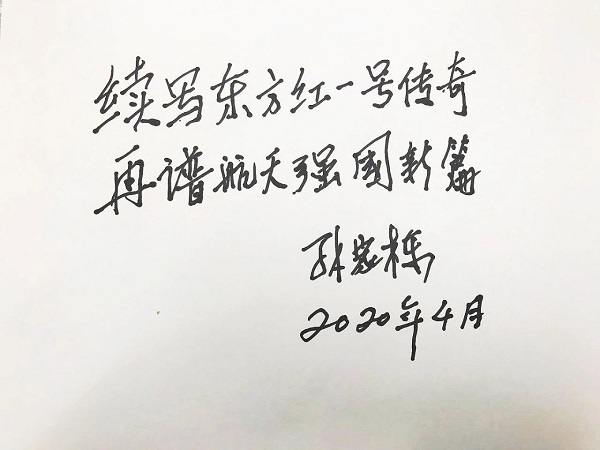 续写东方红一号传奇
再谱航天强国新篇
孙家栋
2020年4月